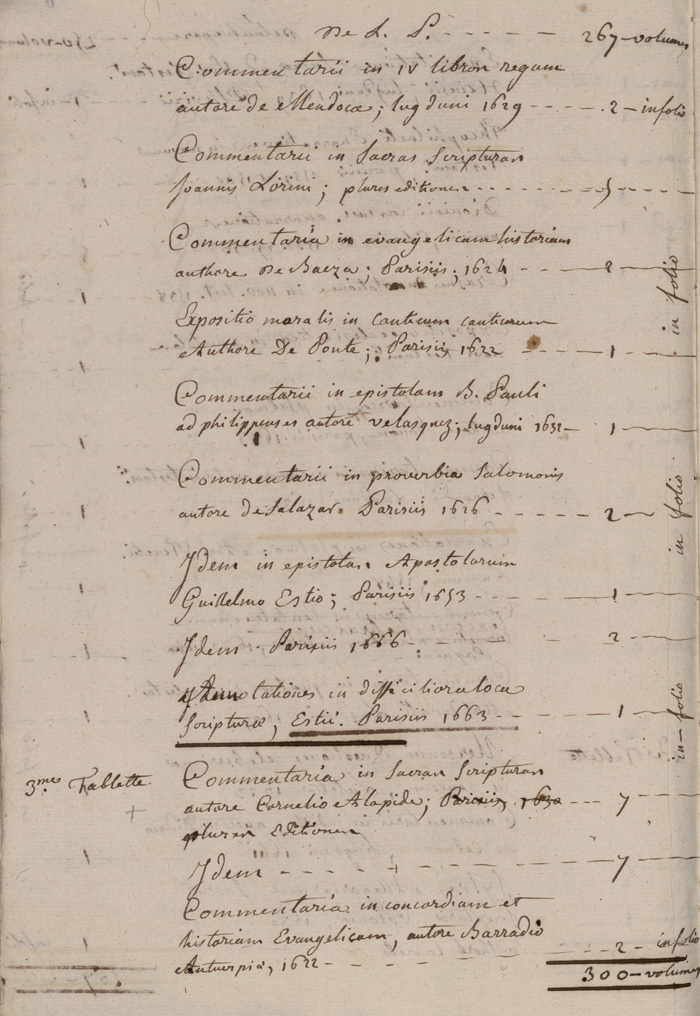 De L. P. - - - - 267 - volumes
Commentarii in IV libron regum
autore de Mendoca; lugduni 1629 - - - - 2 - infolio
Commentarii in Sacras Scripturas
Joannis Lorini; plures editiones - - - - 5 -
Commentaria in evangelicam historiam
authore De Baeza; Parisiis, 1624 - - - 2
Expositio moralis in canticum canticorum
Authore De Ponte; Parisiis 1622 - - - 1 -
Commentarii in epistolam B. Pauli
ad philippenses autore Velasquez; lugduni 1632 - 1 -
Commentarii in proverbia Salomonis
autore de Salazar. Parisiis 1626 - - - - 2 -
Idem in epistolas Apostolorum
Guillelmo Estio; Parisiis 1653 - - - 1
Idem. Parisiis 1666 - - - - 2
Annotationes in difficiliora loca
Scripturæ, Estii. Parisiis 1663 - - - 1
3me Tablette
Commentaria in Sacram Scripturam
autore Cornelio A lapide; Parisiis, 1630 - - 7
plures Editiones
Idem - - - - 7
Commentaria in concordiam et
historiam Evangelicam, autore Barradio
Antuerpiæ, 1622 - - - - 2 - infolio
300 - volumes
in folio
in folio
in-folio